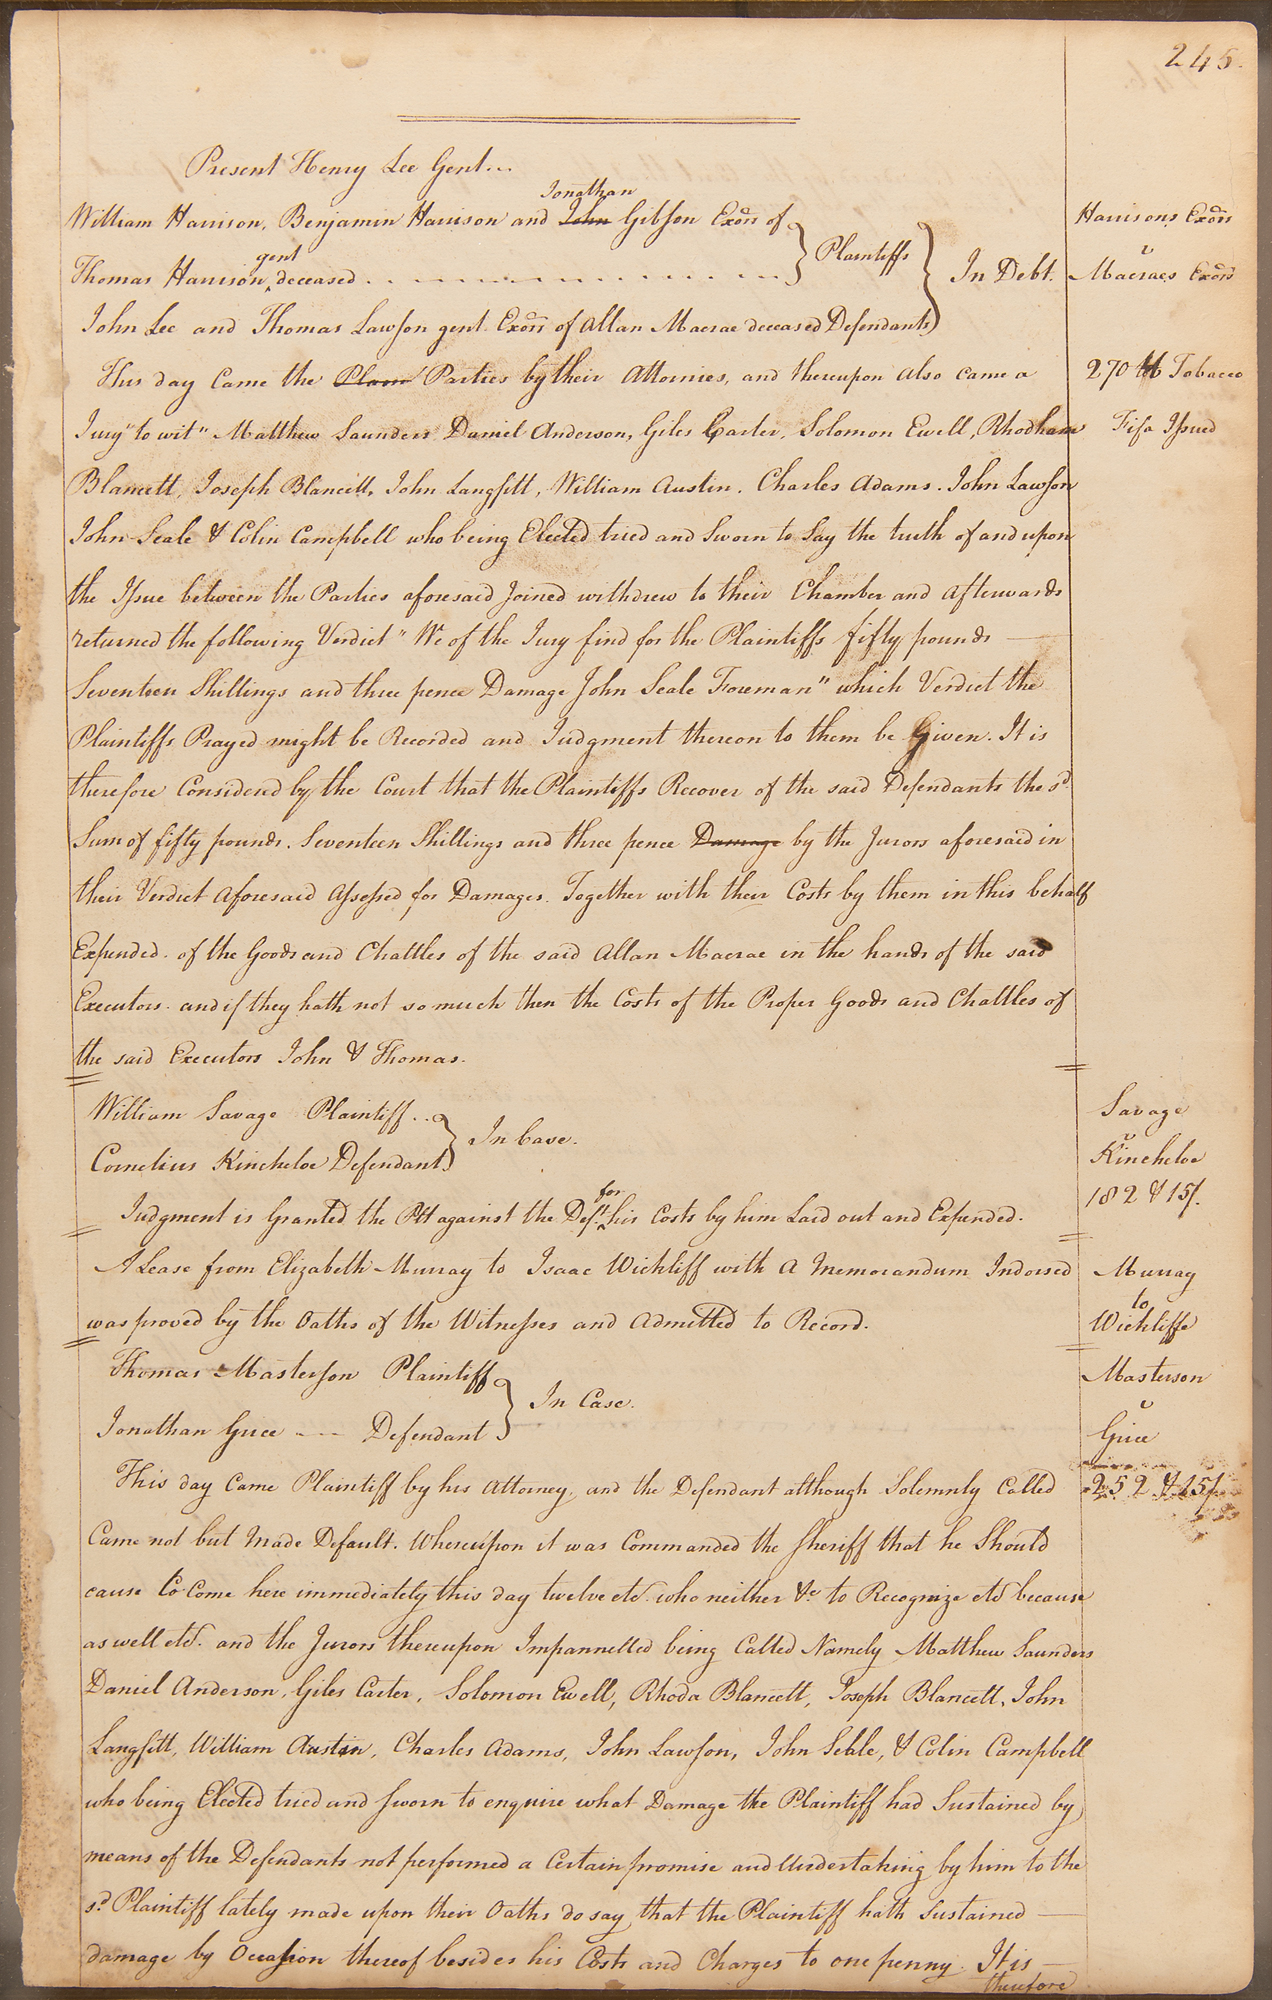 245.
Present Henry Lee Gent...
Jonathan
William Harrison, Benjamin Harrison and John Gibson Exors of
Plaintiffs
gent
Thomas Harrison, deceased
In Debt.
John Lee and Thomas Lawson gent. Exors of Allan Macrae deceased Defendants
Harrisons Exors
v
Macraes Exors
This day Came the Plain Parties by their Attornies, and thereupon also came a
270 lb Tobacco
Jury "to wit" Matthew Saunders Daniel Anderson, Giles Carter, Solomon Ewell, Rhodham
Fifa Issued
Blancett, Joseph Blancett, John Langfitt, William Austin. Charles Adams. John Lawson
John Seale & Colin Campbell who being Elected tried and Sworn to Say the truth of and upon
the Issue between the Parties aforesaid Joined withdrew to their Chamber and afterwards
returned the following Verdict "We of the Jury find for the Plaintiffs fifty pounds
Seventeen Shillings and three pence Damage John Seale Foreman" which Verdict the
Plaintiffs Prayed might be Recorded and Judgment thereon to them be Given. It is
therefore Considered by the Court that the Plaintiffs Recover of the said Defendants the sd.
Sum of fifty pounds. Seventeen Shillings and three pence Damage by the Jurors aforesaid in
their Verdict aforesaid Assessed for Damages. Together with their Costs by them in this behalf
Expended. of the Goods and Chattles of the said Allan Macrae in the hands of the said
Executors. and if they hath not so much then the Costs of the Proper Goods and Chattles of
the said Executors John & Thomas.
William Savage Plaintiff..
In Case.
Cornelius Kincheloe Defendant
Savage
v
Kincheloe
182 & 15/.
for
Judgment is Granted the Plt against the Deft. his Costs by him Laid out and Expended.
A Lease from Elizabeth Murray to Isaac Wickliff with a Memorandum Indorsed
was proved by the Oaths of the Witnesses and Admitted to Record.
Murray
to
Wickliffe
Thomas Masterson Plaintiff
In Case.
Jonathan Grice Defendant
Masterson
v
Grice
252 & 15/.
This day Came Plaintiff by his Attorney, and the Defendant although Solemnly Called
Came not but Made Default. Whereupon it was Commanded the Sheriff that he Should
cause to Come here immediately this day twelve etc. who neither &c. to Recognize etc because
as well etc. and the Jurors thereupon Impannelled being Called Namely Matthew Saunders
Daniel Anderson, Giles Carter, Solomon Ewell, Rhoda Blancett, Joseph Blancett, John
Langfitt, William Austin, Charles Adams, John Lawson, John Seale, & Colin Campbell
who being Elected tried and Sworn to enquire what Damage the Plaintiff had Sustained by
means of the Defendants not performed a Certain promise and Undertaking by him to the
sd. Plaintiff lately made upon their Oaths do say that the Plaintiff hath Sustained
damage by Occasion thereof besides his Costs and Charges to one penny. It is
therefore